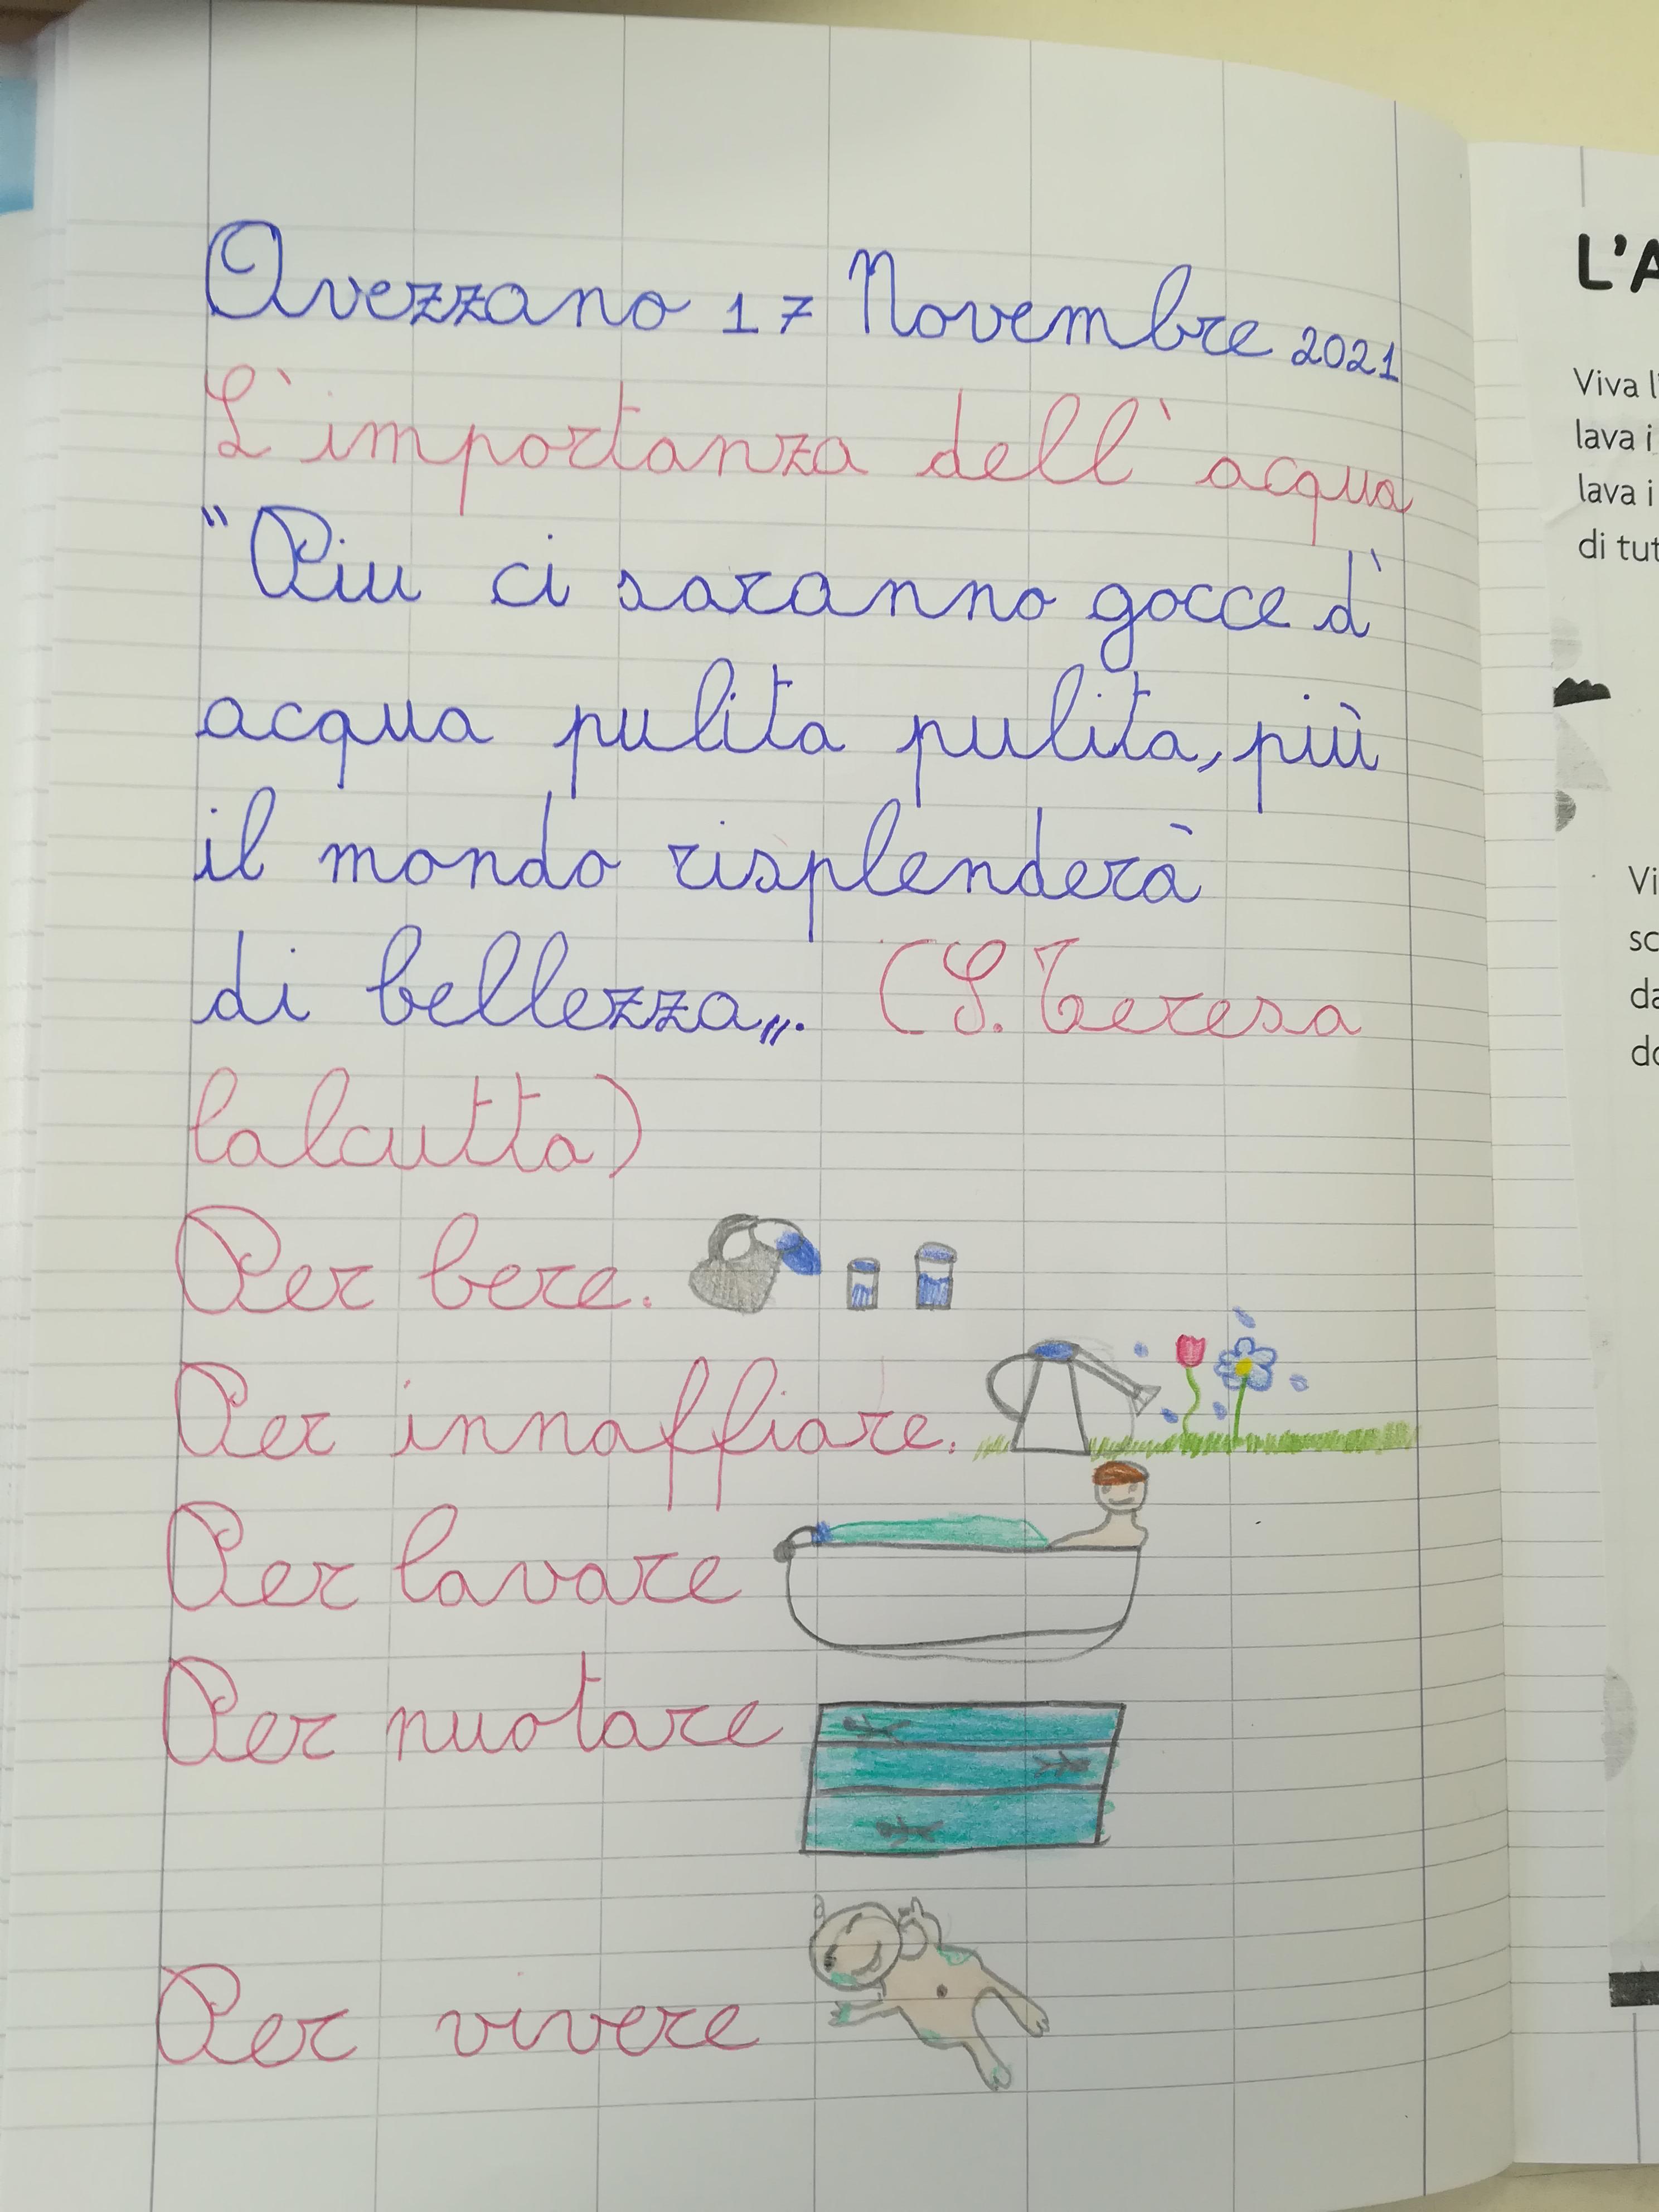 Avezzano 17 Novembre 2021
L'importanza dell'acqua
"Piu ci saranno gocce d'
acqua pulita pulita, più
il mondo risplenderà
di bellezza„. (S. Teresa
Calcutta)
Per bere.
Per innaffiare.
Per lavare
Per nuotare
Per vivere
L'A
Viva l'
lava i
lava i
di tut
Vi
sc
da
do